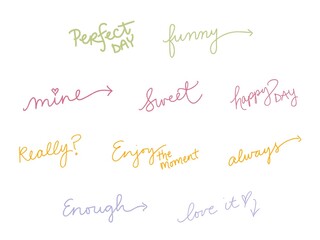 Perfect DAY funny
mine sweet happy DAY
Really? Enjoy the moment always
Enough love it